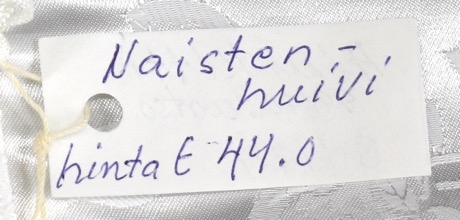 Naisten-
huivi
hinta € 44.0